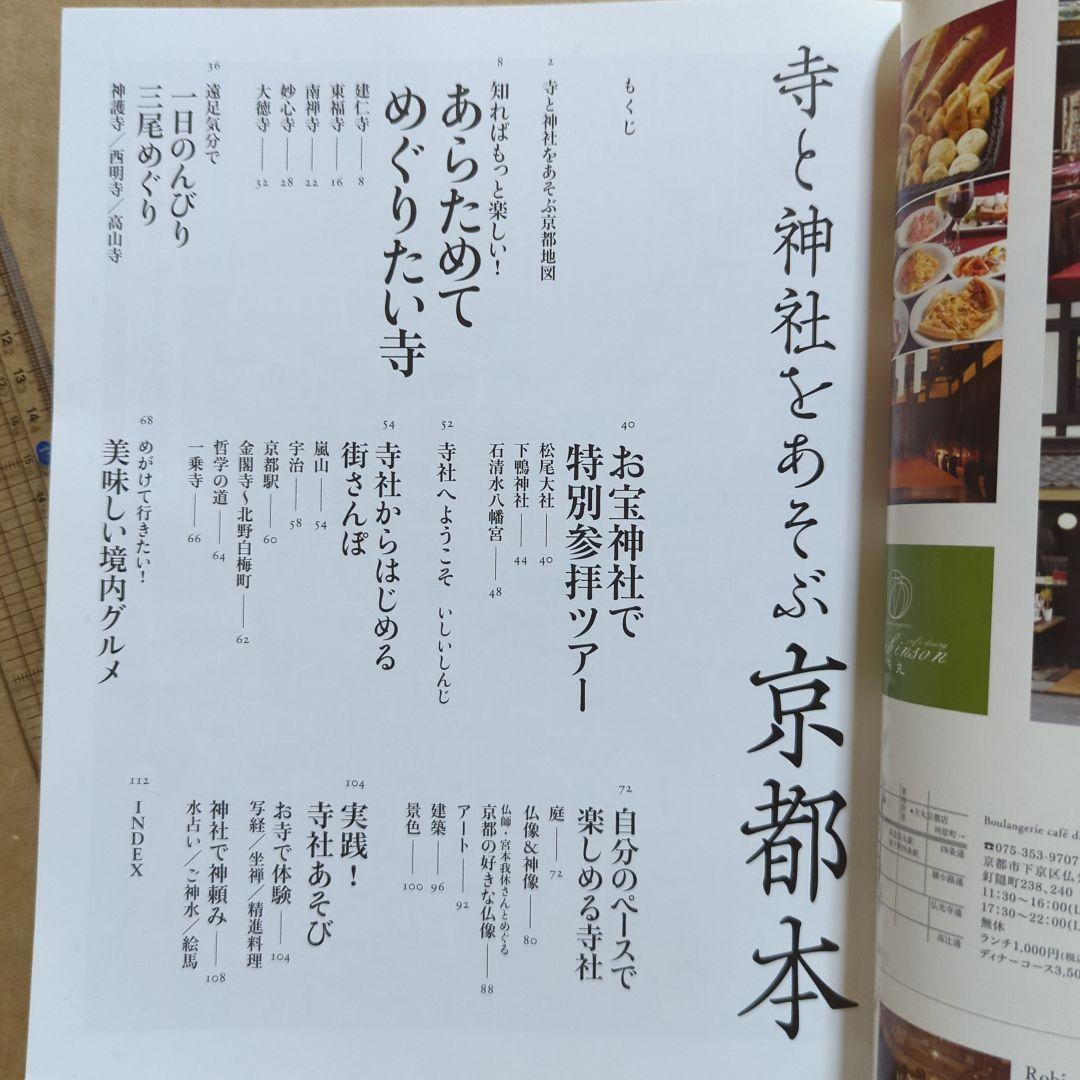 寺と神社をあそぶ京都本
もくじ
2 寺と神社をあそぶ京都地図
8 知ればもっと楽しい!
あらためて
めぐりたい寺
建仁寺——8
東福寺——16
南禅寺——22
妙心寺——28
大徳寺——32
36 遠足気分で
一日のんびり
三尾めぐり
神護寺/西明寺/高山寺
40 お宝神社で
特別参拝ツアー
松尾大社——40
下鴨神社——44
石清水八幡宮——48
52 寺社へようこそ いしいしんじ
54 寺社からはじめる
街さんぽ
嵐山——54
宇治——58
京都駅——60
金閣寺〜北野白梅町——62
哲学の道——64
一乗寺——66
68 めがけて行きたい!
美味しい境内グルメ
72 自分のペースで
楽しめる寺社
庭——72
仏像&神像——80
仏師・宮本我休さんとめぐる
京都の好きな仏像——88
アート——92
建築——96
景色——100
104 実践!
寺社あそび
お寺で体験——104
写経/坐禅/精進料理
神社で神頼み——108
水占い/ご神水/絵馬
112 INDEX
cafe dining
大丸京都店
河原町→
四条通
綾小路通
仏光寺通
高辻通
Boulangerie café d
☎075-353-9707
京都市下京区仏
釘隠町238、240
11:30〜16:00(L
17:30〜22:00(L
無休
ランチ1,000円(税込
ディナーコース3,50